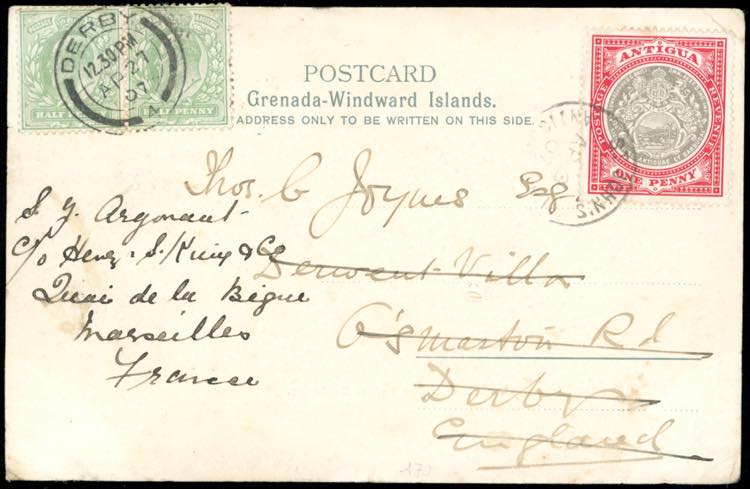 DERBY
12.30PM
AP 27
07
HALF PENNY
HALF PENNY
POSTCARD
Grenada-Windward Islands.
ADDRESS ONLY TO BE WRITTEN ON THIS SIDE.
ANTIGUA
POSTAGE
REVENUE
ONE PENNY
Thos. C Joynes Esq
Derwent Villa
O'smaston Rd
Derby
England
S. Y. Argonaut
c/o Henry S. King & Co
Quai de la Bigue
Marseilles
France
170